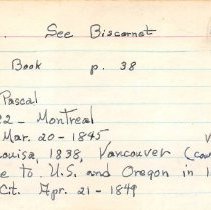 . See Biscornet
Book p. 38
Pascal
22 - Montreal
Mar. 20 - 1845 V
ouisa, 1838, Vancouver (cou
e to U.S. and Oregon in 1
Cit. Apr. 21 - 1849